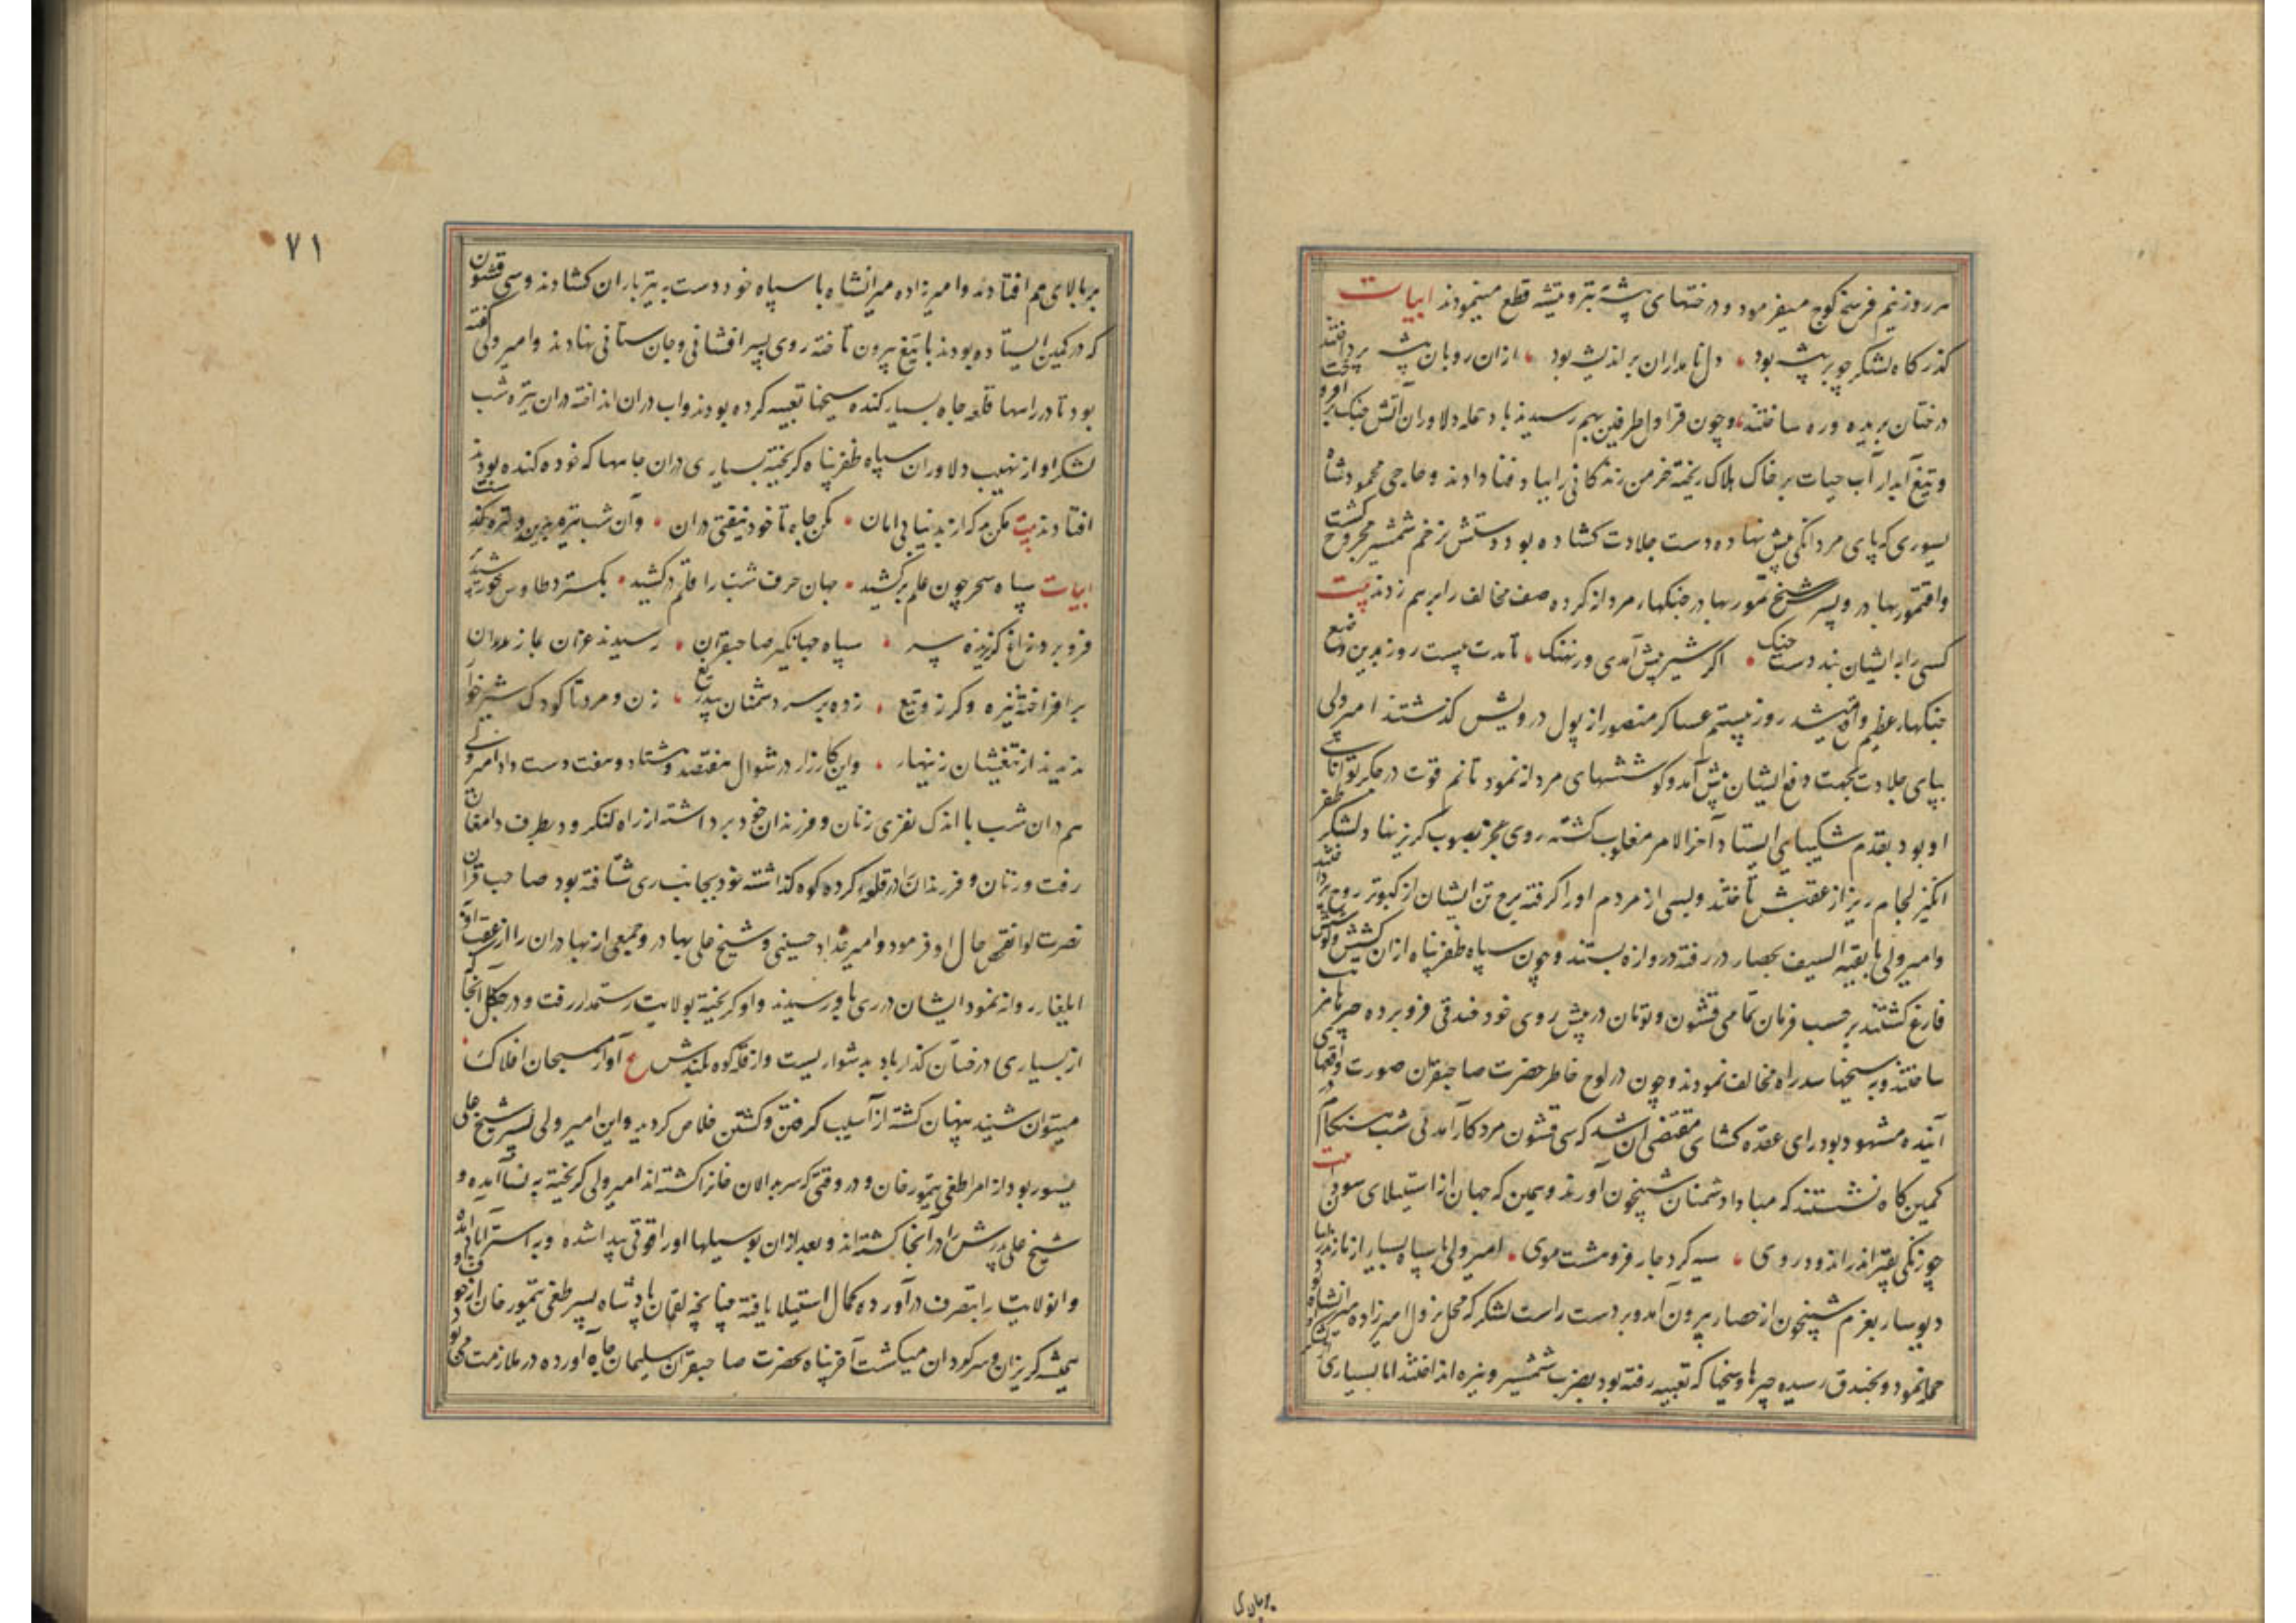 هر روز نیم فرسخ کوچ میفرمود و درختهای بیشه بتبر و تیشه قطع مینمودند ابیات
گذرگاه لشکر چو بر بیشه بود دل نامداران بر اندیشه بود ازان رو بان بیشه پرداختند
درختان بریده وره ساختند و چون قراول طرفین بهم رسیدند باد حمله دلاوران آتش جنک بر افروخت
و تیغ آبدار آب حیات بر خاک هلاک ریخته خرمن زندگانی را بباد فنا دادند و حاجی محمود شاه
یسوری که پای مردانکی پیش نهاده دست جلادت کشاده بود دستش بزخم شمشیر مجروح کشت
واقتمور بهادر و پسر شیخ تمور بهادر جنکهاء مردانه کرده صف مخالف را بر هم زدند بیت
کسی را بر ایشان نبد دست جنک اکر شیر پیش آمدی ور نهنک تا مدت بیست روز بدین وضع
جنکهاء عظیم واقع میشد روز بیستم عساکر منصور از پول درویش کذشتند امیر ولی
بپای جلادت بجهت دفع ایشان پیش آمد و کوششهای مردانه نمود تا نم قوت در جکر توانایی
او بود بقدم شکیبایی ایستاد آخر الامر مغلوب کشته روی عجز بصوب کریز نهاد لشکر ظفر
انکیز لجام ریز از عقبش تاختند وبسی از مردم او را کرفته برج تن ایشان از کبوتر روح پرداختند
وامیر ولی با بقیة السیف بحصار در رفته دروازه بستند و چون سپاه ظفر پناه ازان کشش و کوشش
فارغ کشتند بر حسب فرمان تمامی قشون و تومان در پیش روی خود خندقی فرو برده چپرها مرتب
ساختند وبه سیخها سد راه مخالف نمودند و چون در لوح خاطر حضرت صاحبقران صورت واقعهای
آینده مشهود بود رای عقده کشای مقتضی آن شد که سی قشون مرد کارآمدنی شب هنکام در
کمین کاه نشستند که مبادا دشمنان شبیخون آورند و همین که جهان از استیلای سودی بیت
چو زنکی بقیر اندر اندود روی سیه کرد جار فرو هشت موی امیر ولی با سپاه بسیار از مازندران
دیوسار بعزم شبیخون از حصار بیرون آمد و بر دست راست لشکر که محل نزول امیرزاده میرانشاه بود
حمله نمود و بخندق رسیده چپرها و سیخها که تعبیه رفته بود بضرب شمشیر و نیزه انداختند اما بسیاری
بر بالای هم افتادند وامیرزاده میرانشاه با سپاه خود دست به تیرباران کشادند و سی قشون
که در کمین ایستاده بودند با تیغ بیرون تاخته روی بسر افشانی و جان ستانی نهادند وامیر ولی کفته
بود تا در راهها قلعه چاه بسیار کنده سیخها تعبیه کرده بودند واب دران انداخته دران تیره شب
لشکر او از نهیب دلاوران سپاه ظفر پناه کریخته بسیاری دران چاهها که خود کنده بودند
افتادند بیت مکن بد که از بد نیابی امان مکن چاه تا خود نیفتی دران وآن شب تیره
ابیات سپاه سحر چون علم بر کشید جهان حرف شب را قلم در کشید بکسترد طاوس خورشید
فرو برد زاغ کریزنده سر سپاه جهانکیر صاحبقران رسیدند غران بمازندران
بر افراخته نیزه و کرز و تیغ زده بر سر دشمنان بیدریغ زن و مرد تا کودک شیر خوار
ندیدند از تیغشان زینهار واین کارزار در شوال هفتصد و هشتاد و هفت دست داد امیر ولی
هم دران شب با اندک نفری زنان و فرزندان خود برداشته از راه لنکرود بطرف دامغان
رفت و زنان و فرزندان را در قلعه کرده کوه کذاشته خود بجانب ری شتافته بود صاحب قران
نصرت لوا تفحص حال او فرمود و امیر خداداد حسینی و شیخ علی بهادر و جمعی از بهادران را از عقب او
ایلغار روانه نمود ایشان در ری باو رسیدند واو کریخته بولایت رستمدار رفت و در جنکل آنجا که
از بسیاری درختان کذار باد بدشواریست واز قله کوه بلندش ع آواز مسبحان افلاک
میتوان شنید پنهان کشته از آسیب کرفتن و کشتن خلاص کردید واین امیر ولی پسر شیخ علی
بیسور بود از امراء طغی تیمور خان و در وقتی که سربدالان خانرا کشته اند امیر ولی کریخته به نسا آمده و
شیخ علی پدرش را در آنجا کشته اند و بعد ازان بوسیلها او را قوتی پیدا شده وبه استراباد آمده
وانولایت را بتصرف درآورده کمال استیلا یافته چنانچه لقمان پادشاه پسر طغی تیمور خان از خوف او
همیشه کریزان وسرکردان میکشت آخر پناه بحضرت صاحبقران سلیمان جاه آورده در ملازمت می بود
۷۱